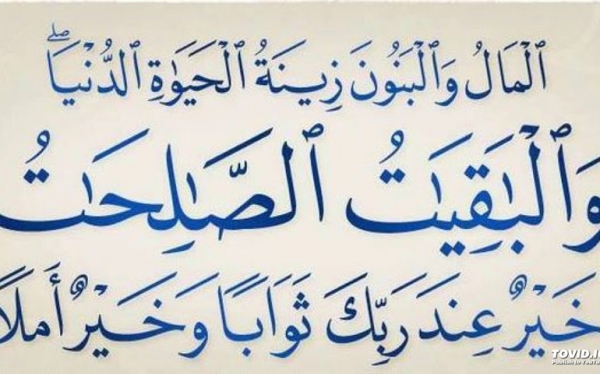 ٱلْمَالُ وَٱلْبَنُونَ زِينَةُ ٱلْحَيَوٰةِ ٱلدُّنْيَاۖ
وَٱلْبَٰقِيَٰتُ ٱلصَّٰلِحَٰتُ
خَيْرٌ عِندَ رَبِّكَ ثَوَابًا وَخَيْرٌ أَمَلًا